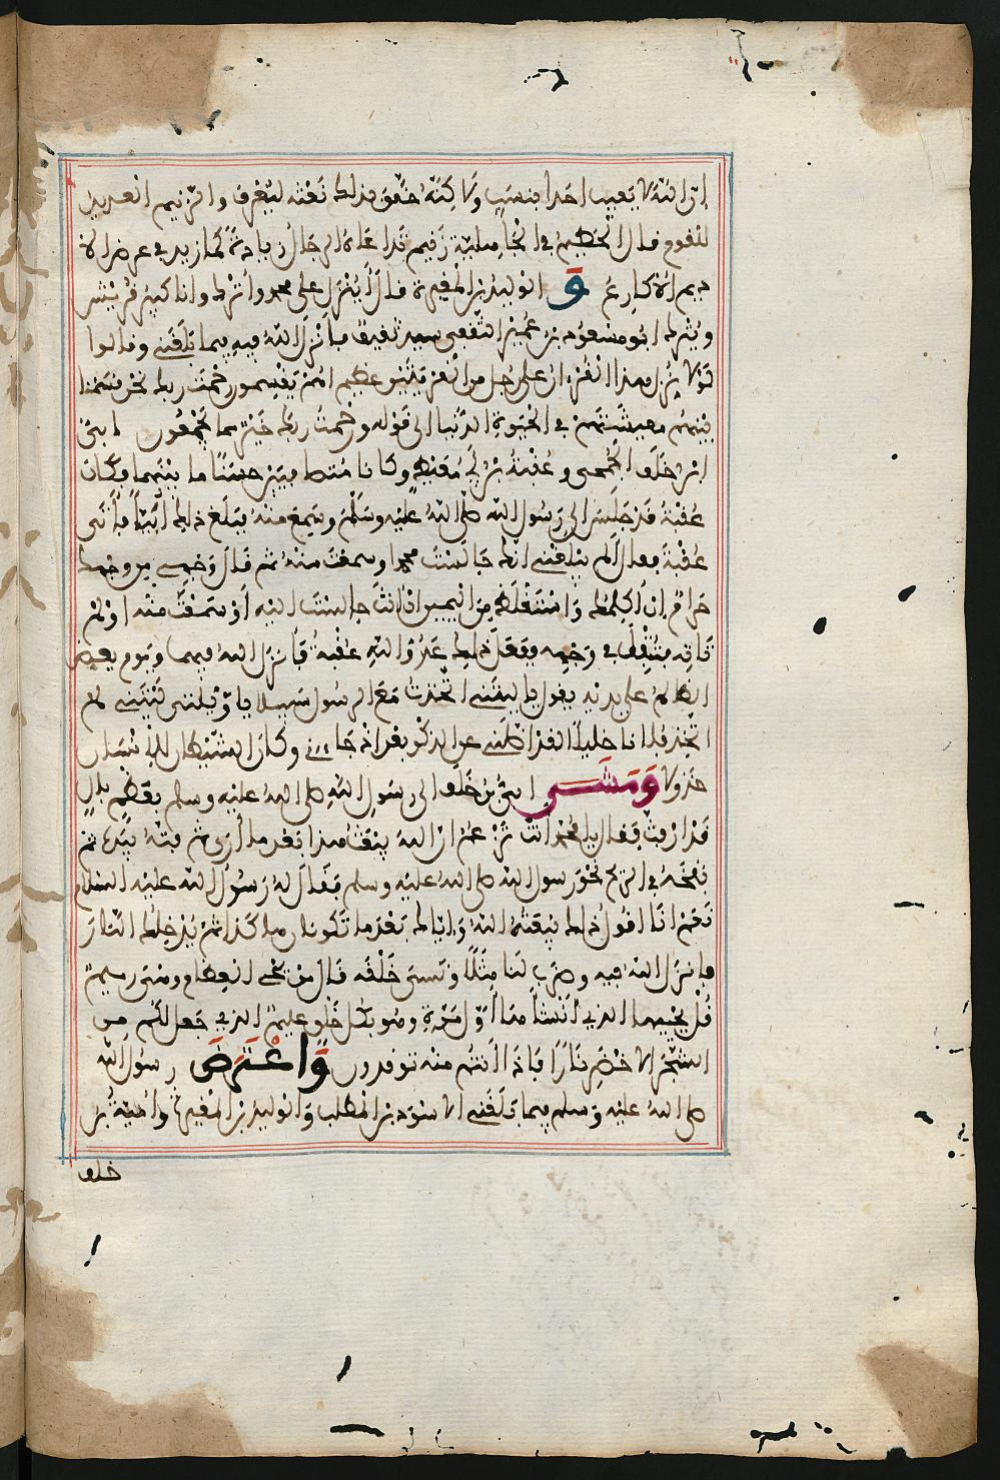 ان الله لا يعيب احدا بنسب ولاكنه حقق بذلك نعته ليعرف والزنيم العديد
للقوم قال الخطيم في الجاهلية زنيم تداعاه الرجال زيادة كما زيد في عرض الا
ديم الاكارع و الوليد بن المغيرة قال أينزل على محمد وأترك وانا كبير قريش
ويترك ابو مسعود بن عمير الثقفي سيد ثقيف فأنزل الله فيه فيما بلغني وقالوا
لولا نزل هذا القرءان على رجل من القريتين عظيم اهم يقسمون رحمت ربك نحن قسمنا
بينهم معيشتهم في الحيوة الدنيا الى قوله ورحمت ربك خير مما يجمعون ابيّ
ابن خلف الجمحي وعقبة بن أبي معيط وكانا متصافيين حسنًا ما بينهما وكان
عقبة قد جلس الى رسول الله صلى الله عليه وسلم وسمع منه فبلغ ذلك أبيًّا فأتى
عقبة فقال ألم يبلغني انك جالست محمدا وسمعت منه ثم قال وجهي من وجهك
حرام ان أكلمك واستغلظ من اليمين ان انت جالست اليه أو سمعت منه او لم
تاته فتتفل في وجهه ففعل ذلك عدو الله عقبة فأنزل الله فيهما ويوم يعض
الظالم على يديه يقول يا ليتني اتخذت مع الرسول سبيلا يا ويلتى ليتني لم
اتخذ فلانا خليلا لقد اظلني عن الذكر بعد اذ جاءني وكان الشيطان للانسان
خذولا وَمَشَى ابيّ بن خلف الى رسول الله صلى الله عليه وسلم بعظم بالٍ
قد ارفتّ فقال يا محمد انت تزعم ان الله يبعث هذا بعد ما أرى ثم فته بيده ثم
نفخه في الريح نحو رسول الله صلى الله عليه وسلم فقال له رسول الله عليه السلام
نعم انا اقول ذلك يبعثه الله واياك بعد ما تكونان هاكذا ثم يدخلك النار
فانزل الله فيه وضرب لنا مثلًا ونسي خلقه قال من يحي العظام وهي رميم
قل يحييها الذي أنشأها أول مرة وهو بكل خلق عليم الذي جعل لكم من
الشجر الاخضر نارًا فاذا أنتم منه توقدون وَاعْتَرَضَ رسول الله
صلى الله عليه وسلم فيما بلغني الاسود بن المطلب والوليد بن المغيرة وأمية بن
خلف